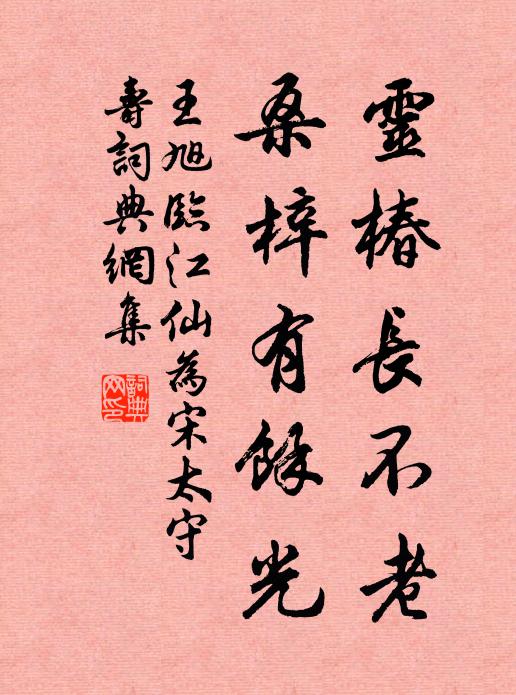 靈椿長不老
桑梓有餘光
王旭臨江仙為宋太守
壽詞典網集
詞典網印